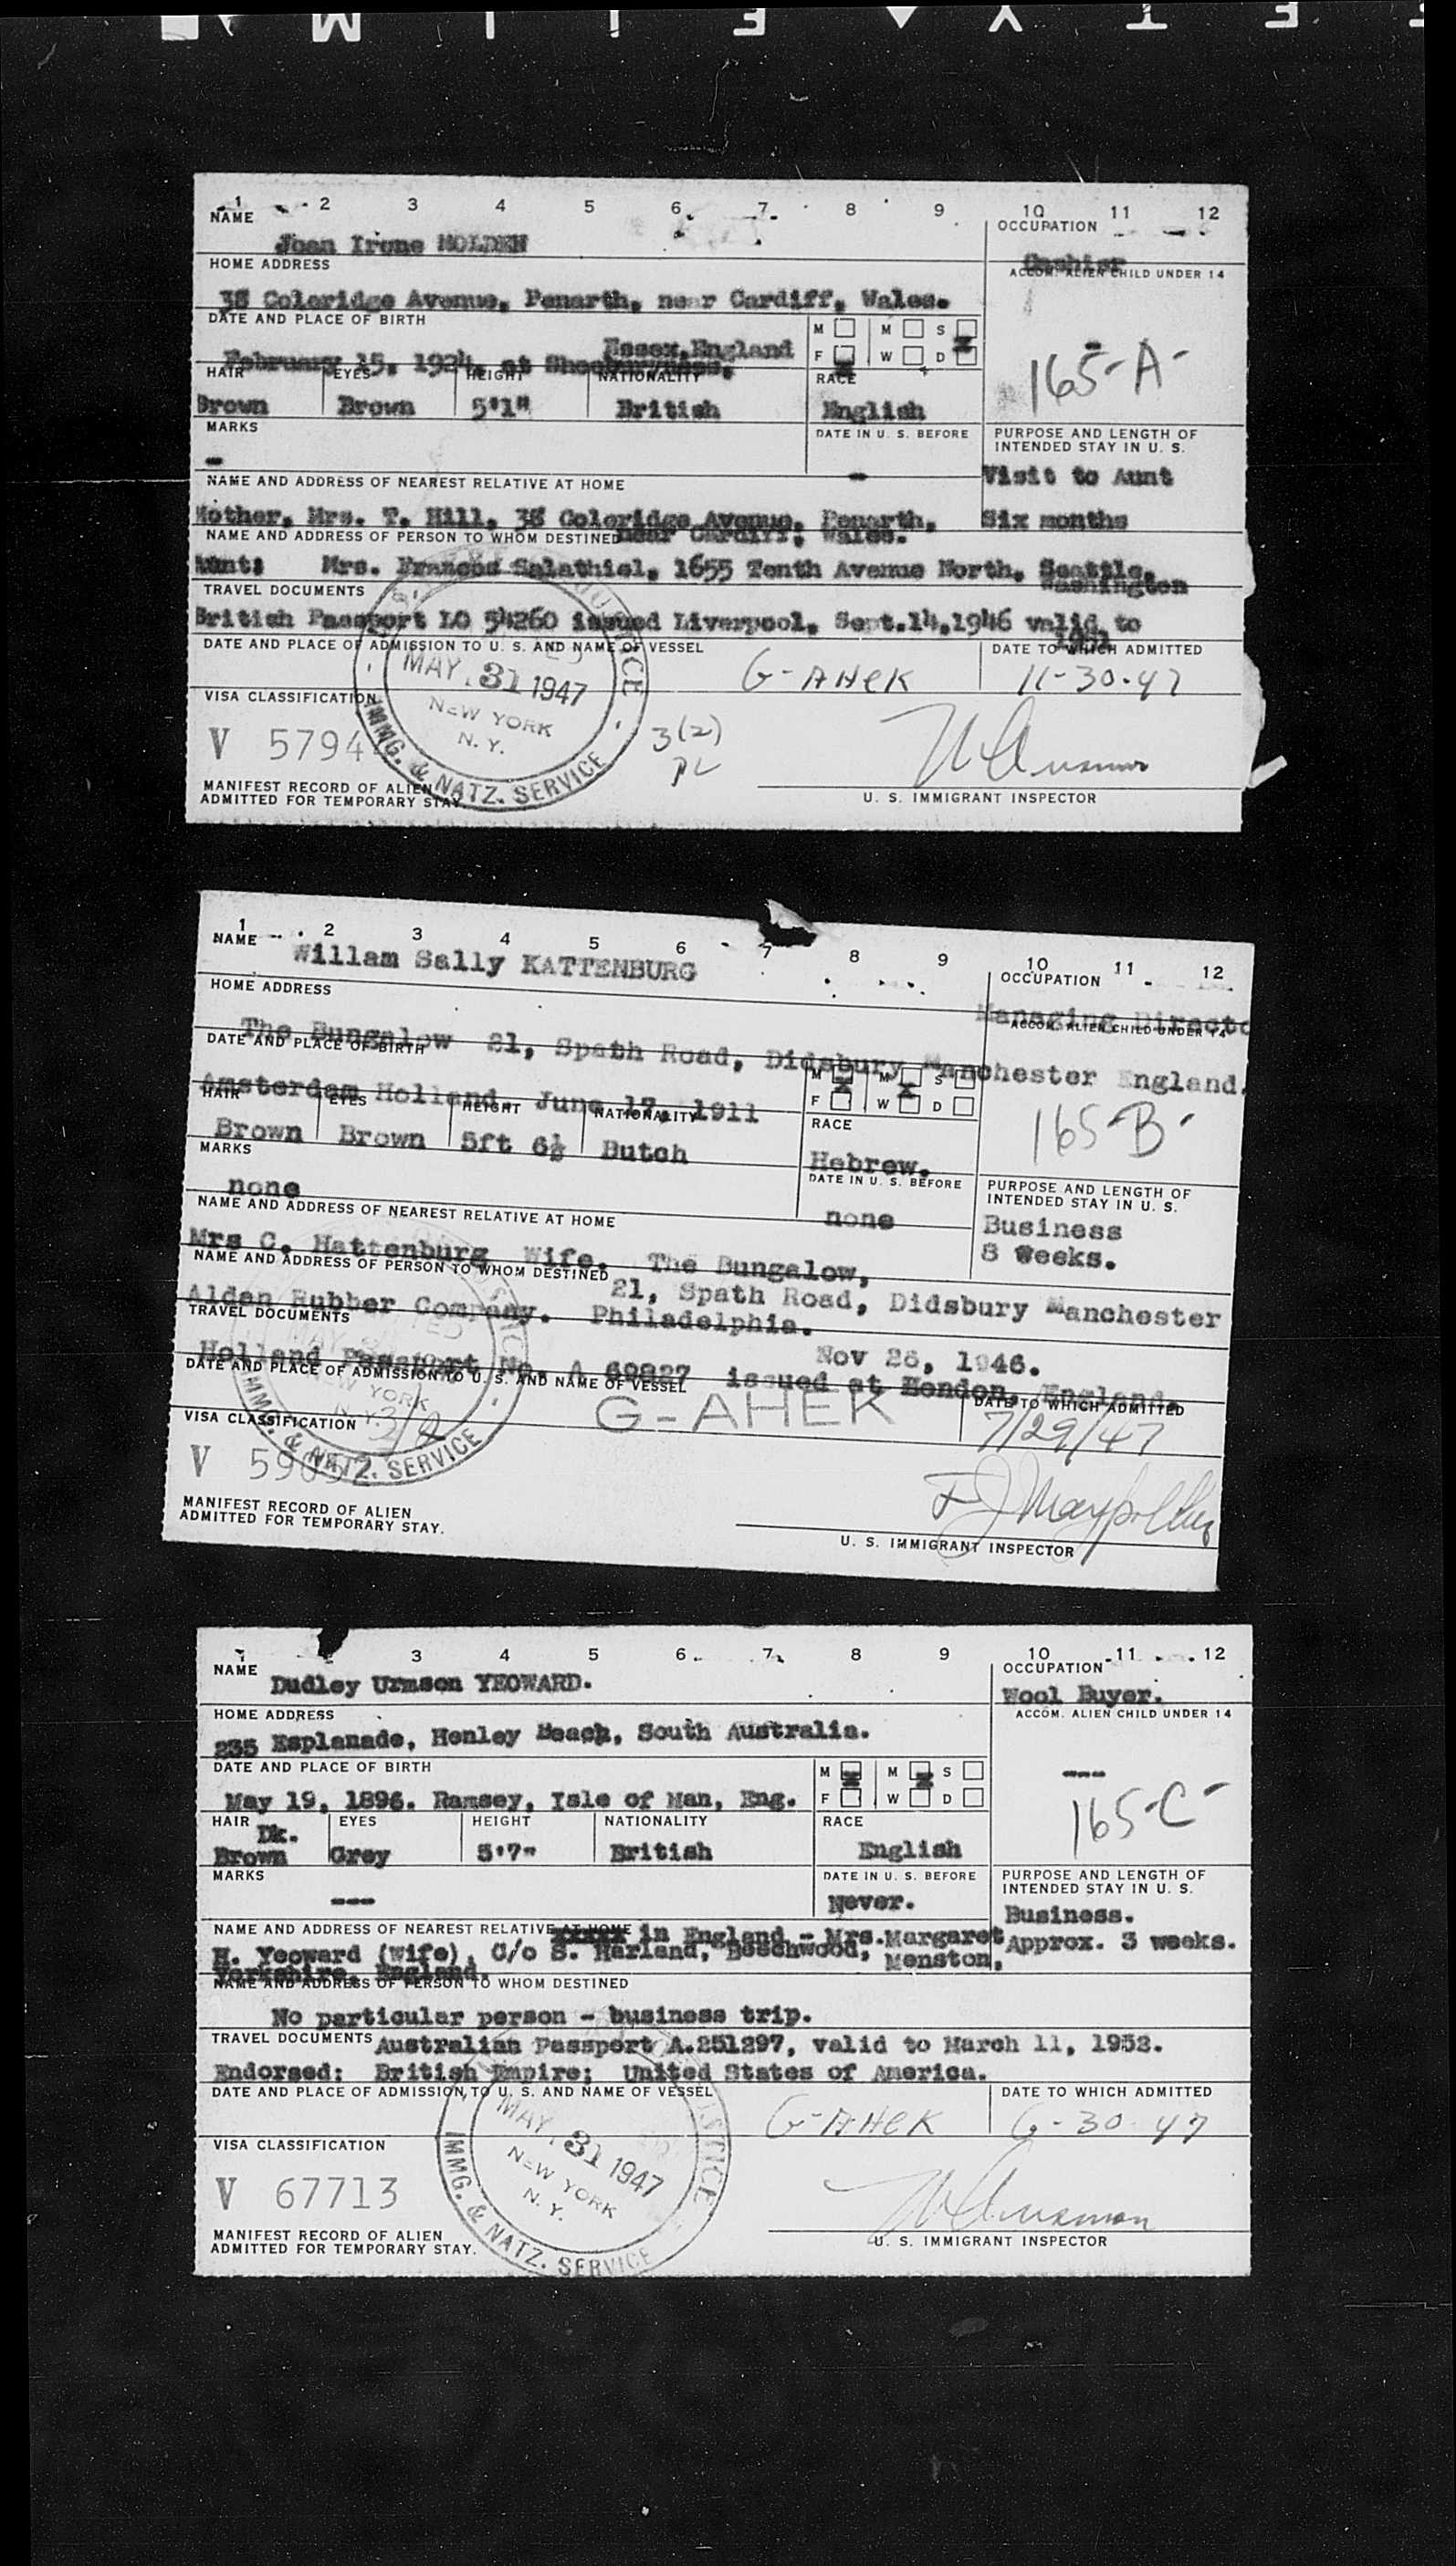 1 2 3 4 5 6 7 8 9 10 11 12
NAME OCCUPATION
Joan Irene MOLDEN Cashier
HOME ADDRESS ACCOM. ALIEN CHILD UNDER 14
38 Coleridge Avenue, Penarth, near Cardiff, Wales.
DATE AND PLACE OF BIRTH M M S
Essex, England F W D
February 15, 1924, at Shoeburyness,
HAIR EYES HEIGHT NATIONALITY RACE 165-A-
Brown Brown 5'1" British English
MARKS DATE IN U. S. BEFORE PURPOSE AND LENGTH OF
INTENDED STAY IN U. S.
- - Visit to Aunt
NAME AND ADDRESS OF NEAREST RELATIVE AT HOME
Mother, Mrs. T. Hill, 38 Coleridge Avenue, Penarth, Six months
near Cardiff, Wales.
NAME AND ADDRESS OF PERSON TO WHOM DESTINED
Aunt: Mrs. Frances Salathiel, 1655 Tenth Avenue North, Seattle,
Washington
TRAVEL DOCUMENTS
British Passport LO 54260 issued Liverpool, Sept.14,1946 valid to
1951
DATE AND PLACE OF ADMISSION TO U. S. AND NAME OF VESSEL DATE TO WHICH ADMITTED
MAY 31 1947 G-AHEK 11-30-47
NEW YORK
N. Y.
IMMG. & NATZ. SERVICE
VISA CLASSIFICATION
V 5794 3(2)
MANIFEST RECORD OF ALIEN
ADMITTED FOR TEMPORARY STAY U. S. IMMIGRANT INSPECTOR
1 2 3 4 5 6 7 8 9 10 11 12
NAME OCCUPATION
Willam Sally KATTENBURG Managing Directo
HOME ADDRESS ACCOM. ALIEN CHILD UNDER 14
The Bungalow 21, Spath Road, Didsbury Manchester England.
DATE AND PLACE OF BIRTH M M S
Amsterdam Holland. June 17, 1911 F W D
HAIR EYES HEIGHT NATIONALITY RACE 165-B-
Brown Brown 5ft 6½ Dutch Hebrew.
MARKS DATE IN U. S. BEFORE PURPOSE AND LENGTH OF
INTENDED STAY IN U. S.
none none Business
8 Weeks.
NAME AND ADDRESS OF NEAREST RELATIVE AT HOME
Mrs C. Hattenburg Wife. The Bungalow,
21, Spath Road, Didsbury Manchester
NAME AND ADDRESS OF PERSON TO WHOM DESTINED
Alden Rubber Company. Philadelphia.
TRAVEL DOCUMENTS
Nov 26, 1946.
Holland Passport No. A 60827 issued at London, England.
DATE AND PLACE OF ADMISSION TO U. S. AND NAME OF VESSEL DATE TO WHICH ADMITTED
G-AHEK 7/29/47
NEW YORK
N.Y.
IMMG. & NATZ. SERVICE
VISA CLASSIFICATION
V 59052
MANIFEST RECORD OF ALIEN
ADMITTED FOR TEMPORARY STAY. U. S. IMMIGRANT INSPECTOR
1 3 4 5 6 7 8 9 10 11 12
NAME OCCUPATION
Dudley Urmson YEOWARD. Wool Buyer.
HOME ADDRESS ACCOM. ALIEN CHILD UNDER 14
235 Esplanade, Henley Beach, South Australia.
DATE AND PLACE OF BIRTH M M S ---
May 19, 1896. Ramsey, Isle of Man, Eng. F W D
HAIR EYES HEIGHT NATIONALITY RACE 165-C-
Dk.
Brown Grey 5'7" British English
MARKS DATE IN U. S. BEFORE PURPOSE AND LENGTH OF
INTENDED STAY IN U. S.
--- Never. Business.
NAME AND ADDRESS OF NEAREST RELATIVE AT HOME in England - Mrs. Margaret Approx. 3 weeks.
H. Yeoward (wife), C/o S. Harland, Beechwood, Menston,
Yorkshire, England.
NAME AND ADDRESS OF PERSON TO WHOM DESTINED
No particular person - business trip.
TRAVEL DOCUMENTS Australian Passport A.251297, valid to March 11, 1952.
Endorsed: British Empire; United States of America.
DATE AND PLACE OF ADMISSION TO U. S. AND NAME OF VESSEL DATE TO WHICH ADMITTED
MAY 31 1947 G-AHEK 6-30-47
NEW YORK
N. Y.
IMMG. & NATZ. SERVICE
VISA CLASSIFICATION
V 67713
MANIFEST RECORD OF ALIEN
ADMITTED FOR TEMPORARY STAY. U. S. IMMIGRANT INSPECTOR